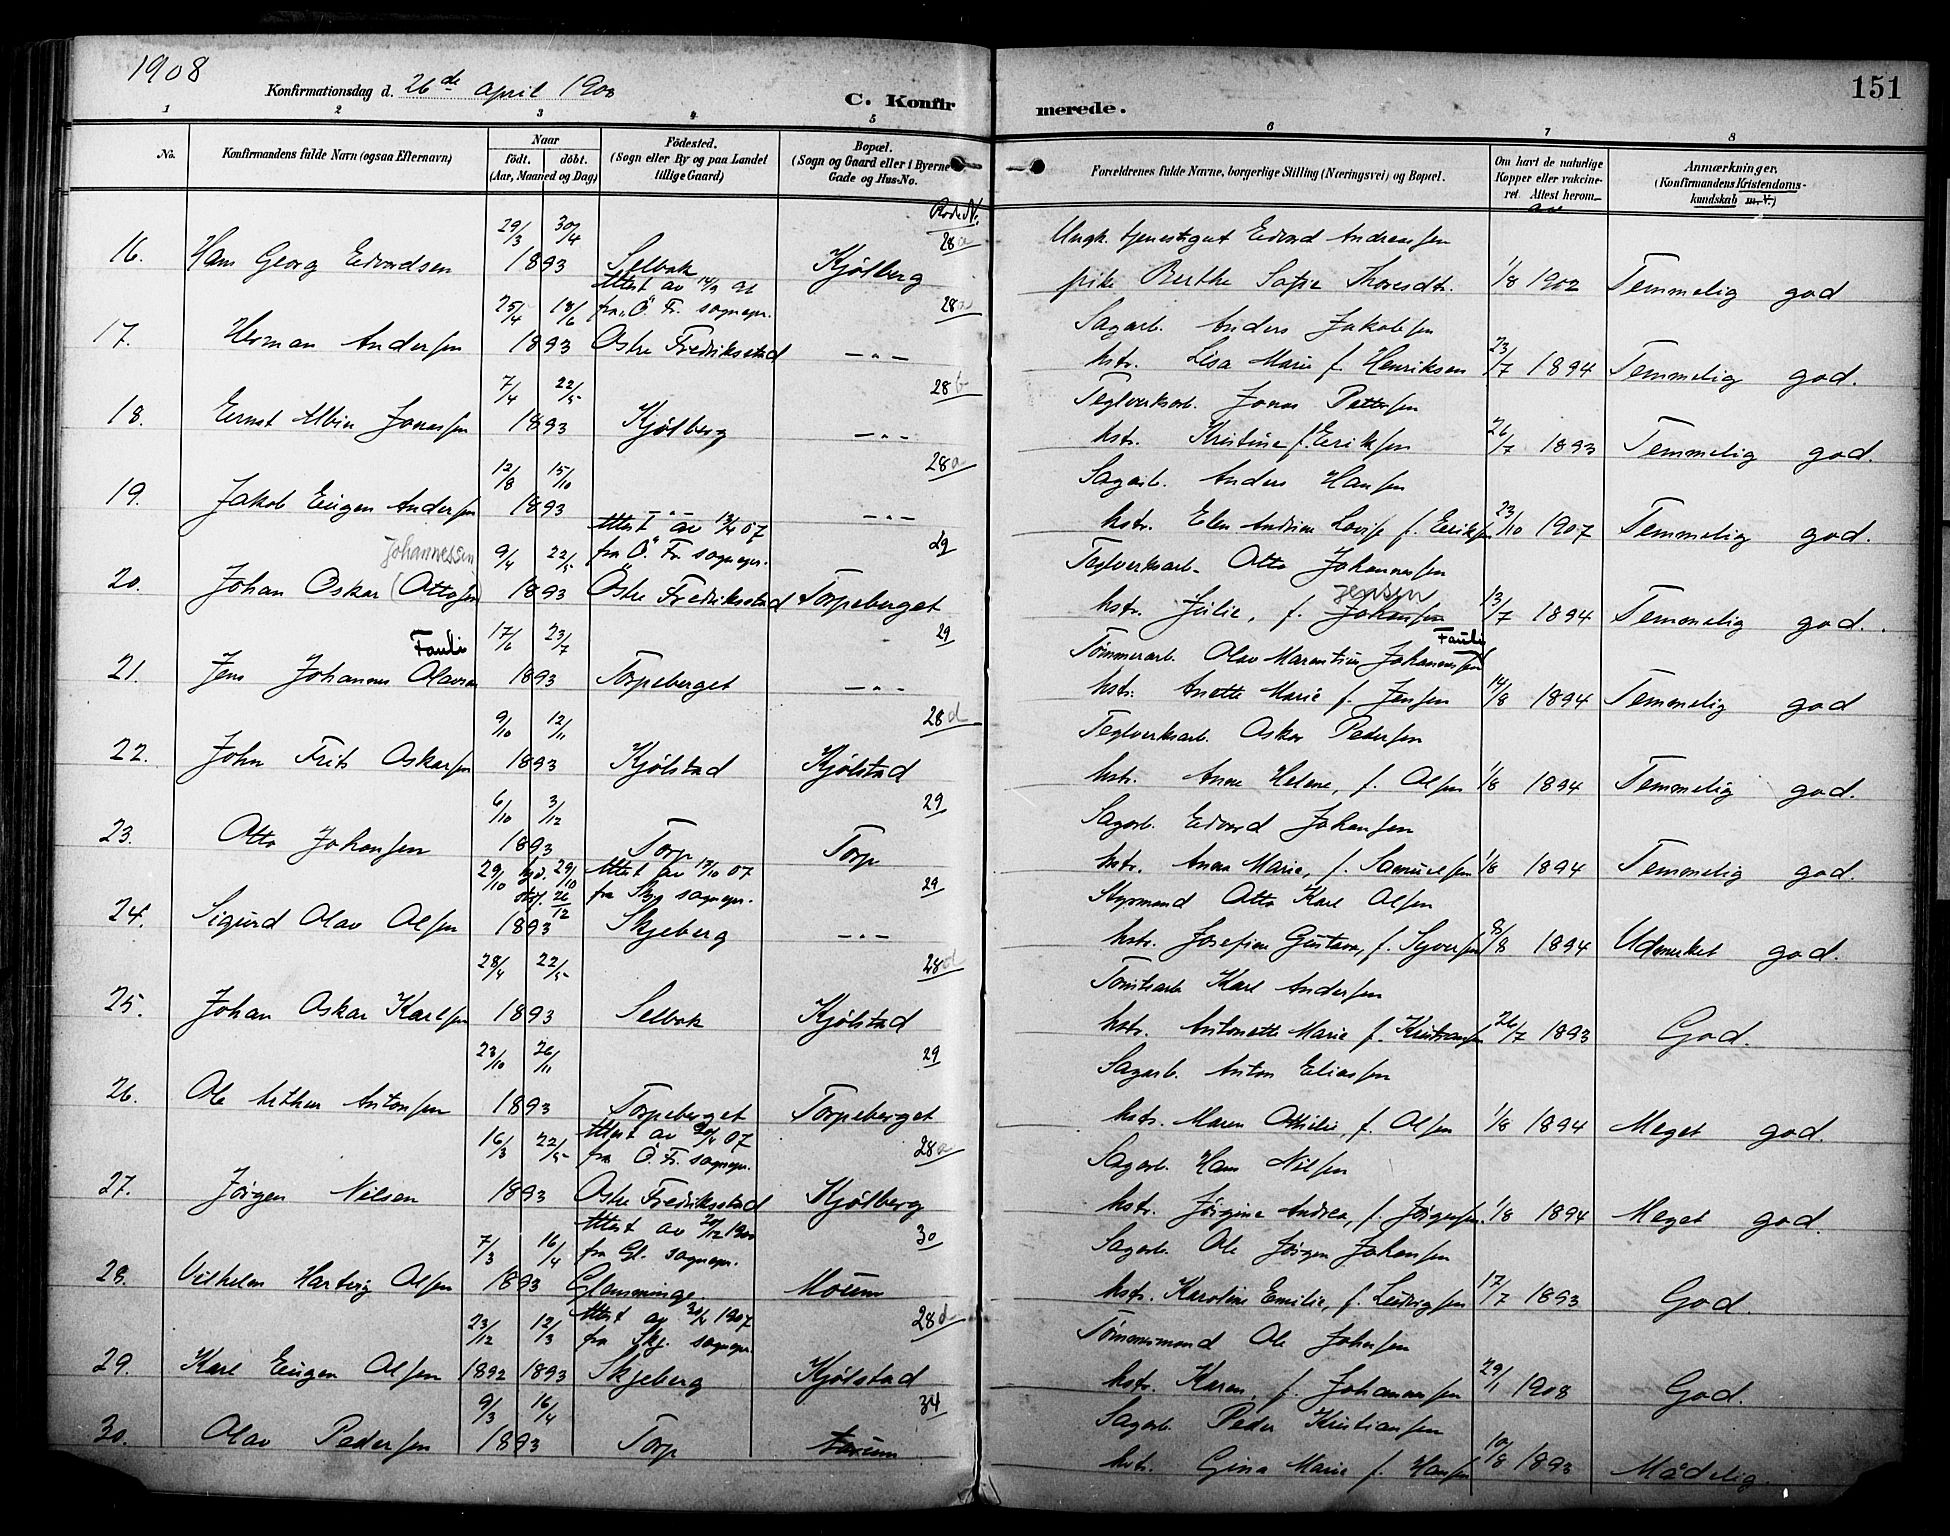 1908
Konfirmationsdag d. 26de april 1908
C. Konfirmerede.
151
1 2 3 4 5 6 7 8
No.
Konfirmandens fulde Navn (ogsaa Efternavn)
Naar
født. døbt.
(Aar, Maaned og Dag)
Fødested.
(Sogn eller By og paa Landet
tillige Gaard)
Bopæl.
(Sogn og Gaard eller i Byerne
Gade og Hus-No.
Forældrenes fulde Navne, borgerlige Stilling (Næringsvei) og Bopæl.
Om havt de naturlige
Kopper eller vakcine-
ret. Attest herom
Anmærkninger,
(Konfirmandens Kristendoms-
kundskab m. V.)
Rode N.
29/3 30/4 28a Ungk. tjenestegut Edvard Andreassen
16. Hans Georg Edvardsen 1893 Selbak Kjølberg pike Berthe Sofie Thoresdtr. 1/8 1902 Temmelig god
Attest av
25/4 18/6 fra Ö. Fr. sognepr. 28a Sagarb. Anders Jakobsen
17. Herman Andersen 1893 Østre Fredriksstad -"- hstr. Lisa Marie f. Henriksen 23/7 1894 Temmelig god.
7/4 22/5 28b Teglverksarb. Jonas Pettersen
18. Ernst Albin Jonassen 1893 Kjølberg -"- hstr. Kristine f. Eriksen 26/7 1893 Temmelig god.
12/8 15/10 28a Sagarb. Anders Hansen
19. Jakob Eugen Andersen 1893 -"- -"- hstr. Elen Andrine Lovise f. Eriksen 23/10 1907 Temmelig god.
Attest av 07
Johannessen 9/4 22/5 fra Ö. Fr. sognepr. 29 Teglverksarb. Otto Johannessen
20. Johan Oskar (Ottosen 1893 Østre Fredriksstad Torpeberget hstr. Julie, f. Johansen Jensen 13/7 1894 Temmelig god.
Fauli 17/6 23/7 29 Tømmerarb. Olav Marentius Johannessen Fauli
21. Jens Johannes Olavsen 1893 Torpeberget -"- hstr. Anette Marie f. Jensen 14/8 1894 Temmelig god
9/10 12/11 28d Teglverksarb. Oskar Pedersen
22. John Frits Oskarsen 1893 Kjølstad Kjølstad hstr. Anne Helene, f. Olsen 1/8 1894 Temmelig god.
6/10 3/12 29 Sagarb. Edvard Johansen
23. Otto Johansen 1893 Torp Torp hstr. Anna Marie, f. Samuelsen 1/8 1894 Temmelig god.
29/10 hjd. 29/10 Attest av 07
stf. 26/12 fra Skj. sognepr. 29 Styrmand Otto Karl Olsen
24. Sigurd Olav Olsen 1893 Skjeberg -"- hstr. Josefine Gustava, f. Syversen 8/8 1894 Udmerket god.
28/4 22/5 28d Tomtearb. Karl Andersen
25. Johan Oskar Karlsen 1893 Selbak Kjølstad hstr. Antonette Marie f. Kristiansen 26/7 1893 God.
23/10 26/11 29 Sagarb. Anton Eliassen
26. Ole Arthur Antonsen 1893 Torpeberget Torpeberget hstr. Maren Othilie, f. Olsen 1/8 1894 Meget god.
Attest av 07
16/3 22/5 fra Ö. Fr. sognepr. 28a Sagarb. Hans Nilsen
27. Jørgen Nilsen 1893 Østre Fredriksstad Kjølberg hstr. Jørgine Andrea, f. Jørgensen. 1/8 1894 Meget god.
Attest av
7/3 16/4 fra Gl. sognepr. 30 Sagarb. Ole Jørgen Johansen
28. Vilhelm Hartvig Olsen 1893 Glemminge. Moum hstr. Karoline Emilie, f. Ludvigsen 17/7 1893 God.
Attest av 1907
23/12 12/3 fra Skj. sognepr. 28d Tømmermand Ole Johnsen
29. Karl Eugen Olsen 1892 1893 Skjeberg Kjølstad hstr. Karen, f. Johannessen 29/1 1908 God.
9/3 16/4 34 Sagarb. Peder Kristiansen
30. Olav Pedersen 1893 Torp hstr. Gina Marie f. Hansen 10/8 1893 Mådelig.